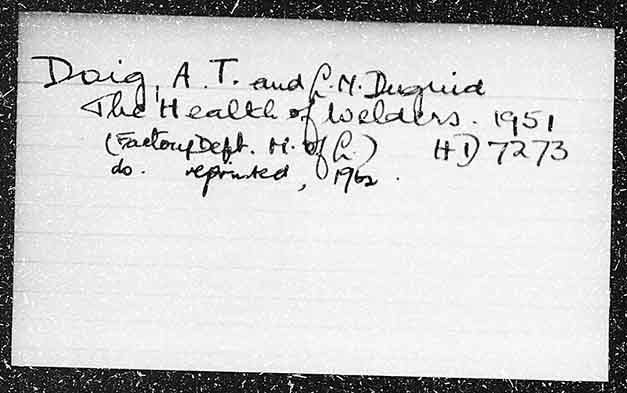 Doig, A.T. and L.N. Duguid
The Health of Welders. 1951
(Factory Dept. M. of L.) HD 7273
do. reprinted, 1962.